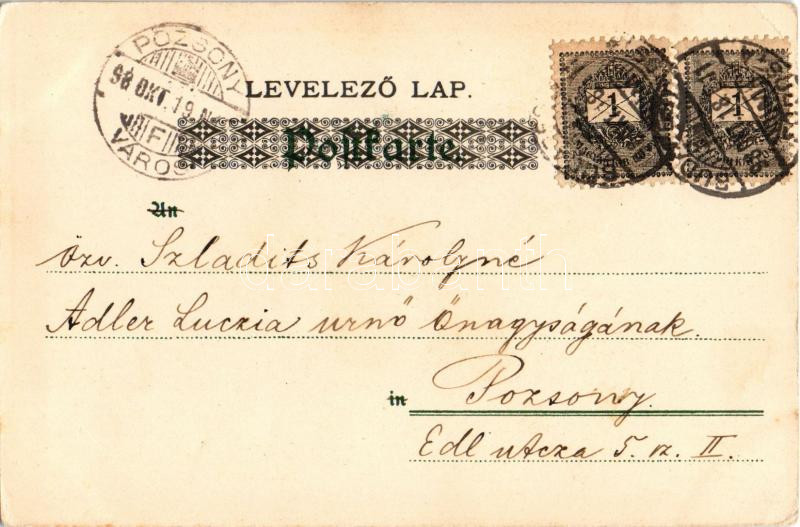 POZSONY
98 OKT. 19. N
F
VÁROS
LEVELEZŐ LAP.
Postkarte
1
1
An
özv. Szladits Károlyné
darabanth
Adler Luczia urnő Önagyságának.
in Pozsony.
Edl utcza 5. sz. II.